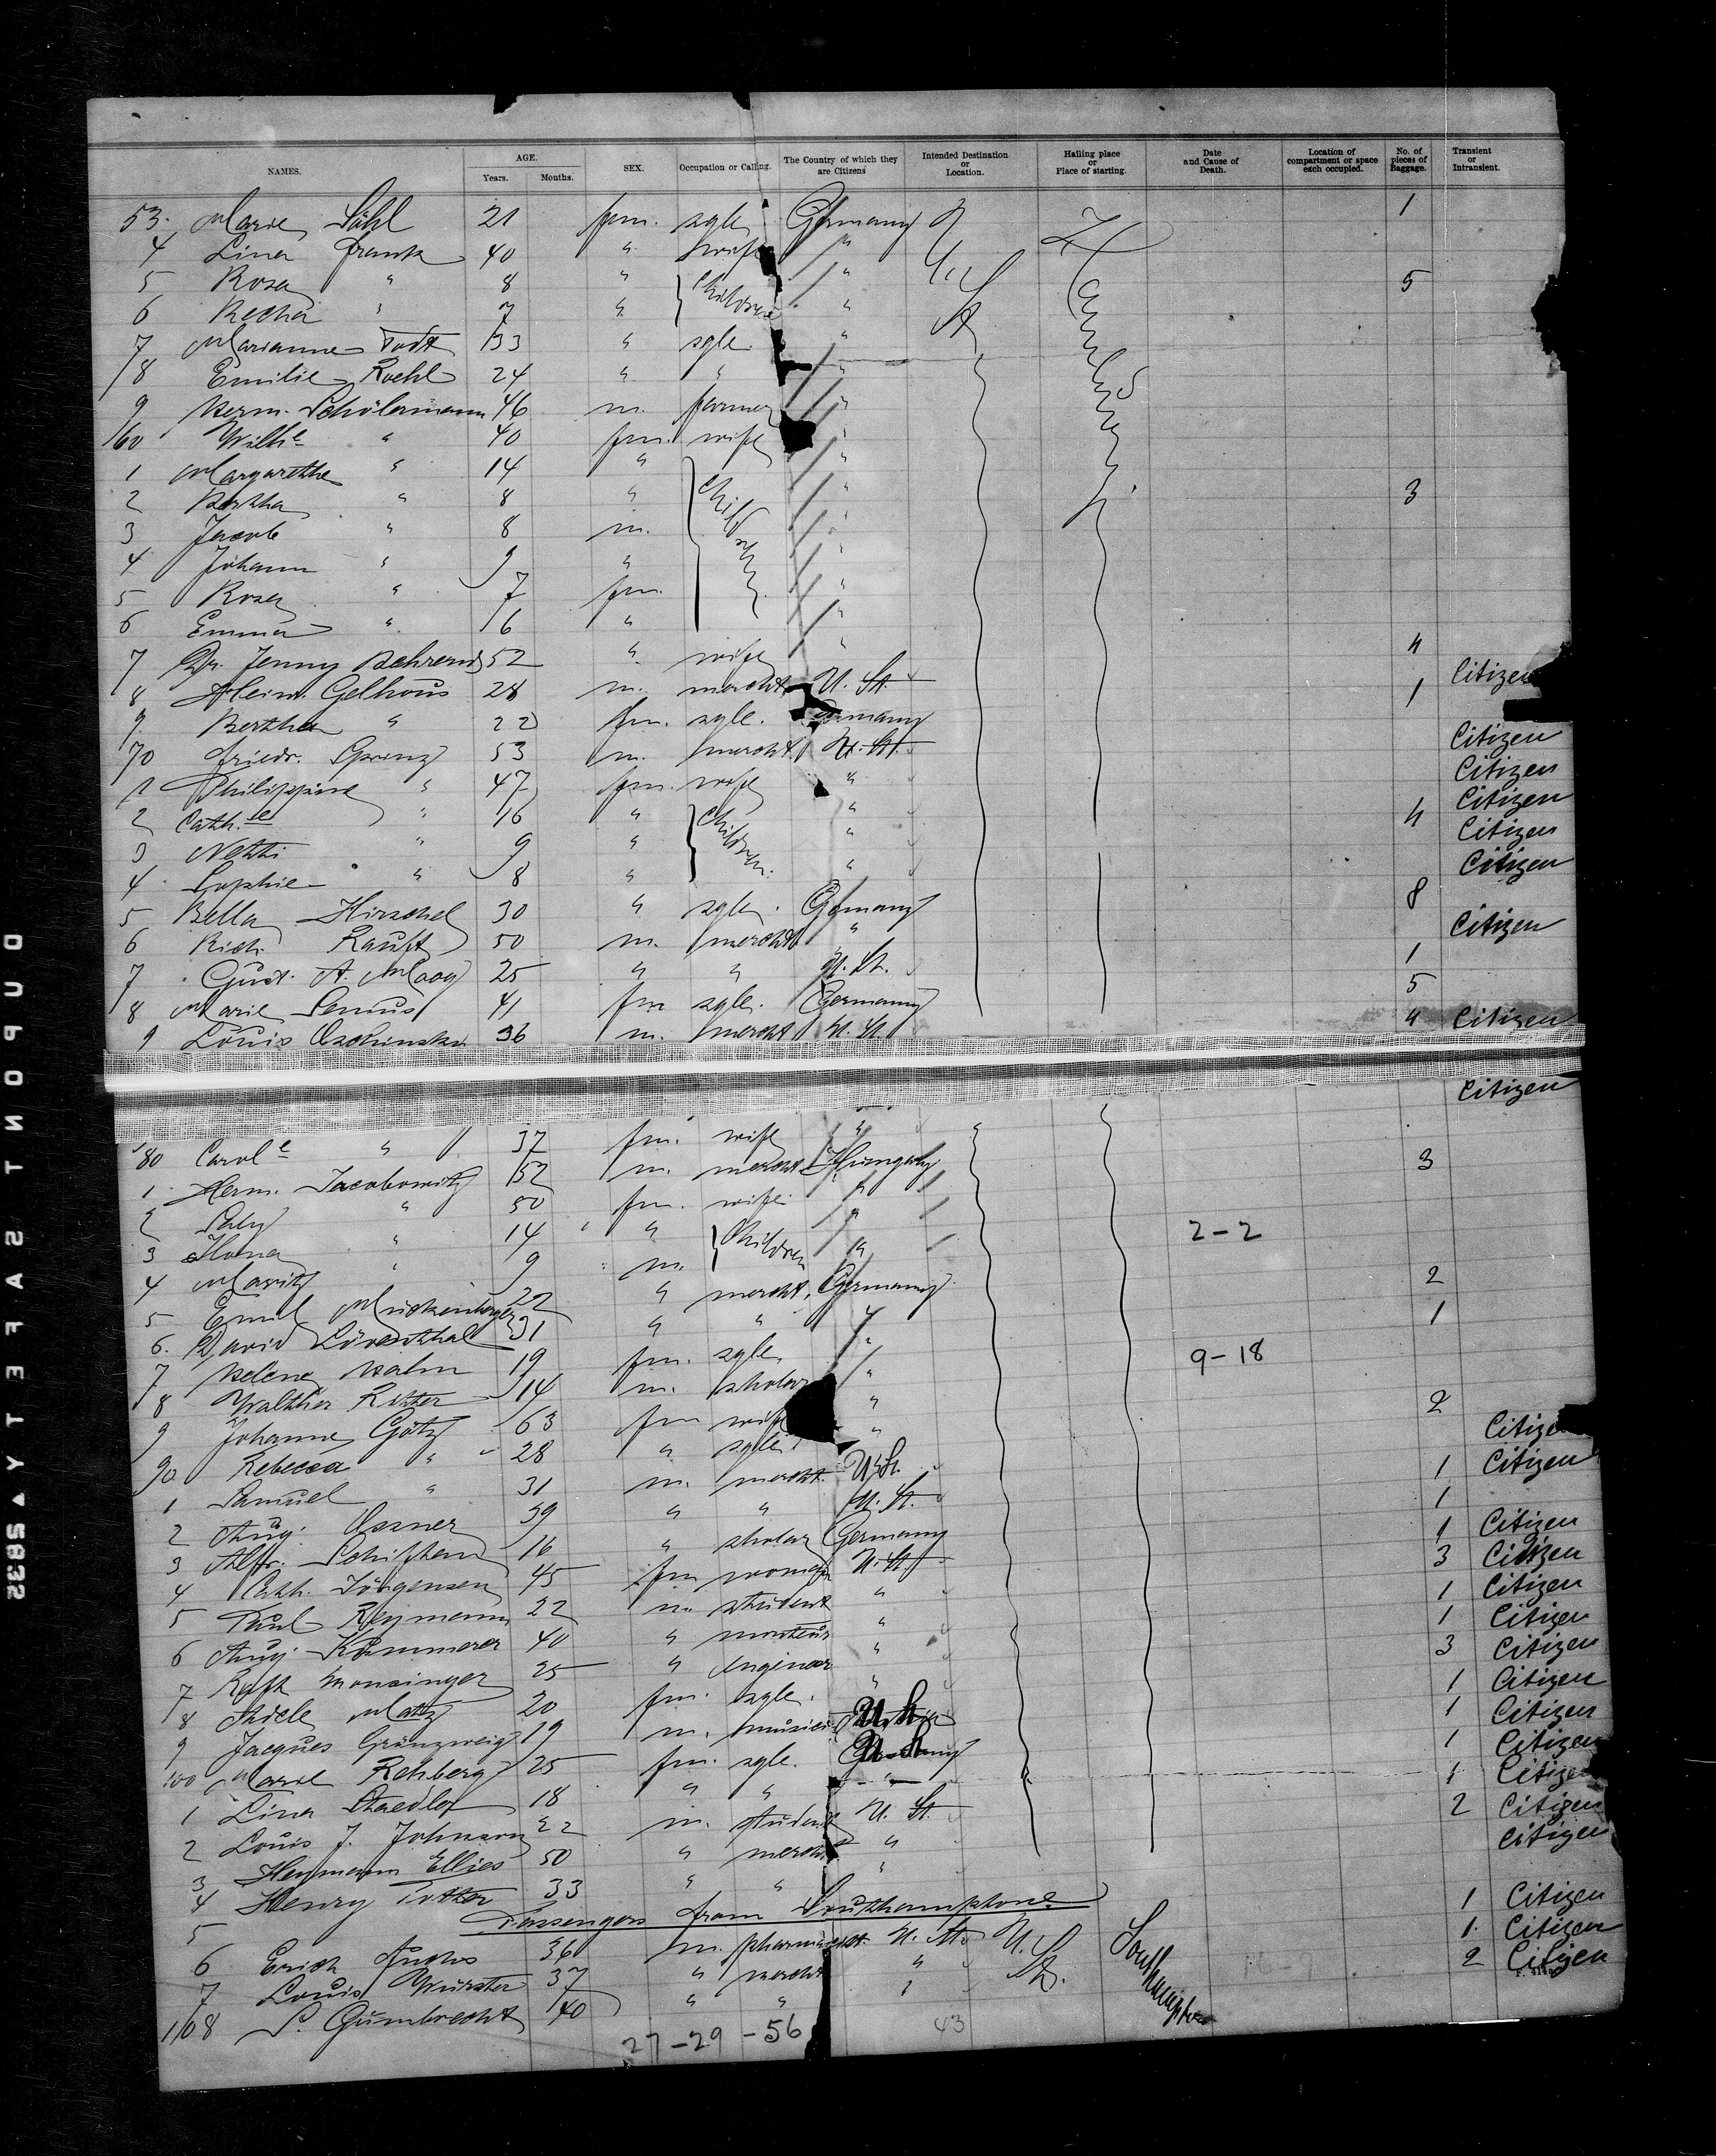 NAMES. AGE. Years. Months. SEX. Occupation or Calling. The Country of which they are Citizens Intended Destination or Location. Hailing place or Place of starting. Date and Cause of Death. Location of compartment or space each occupied. No. of pieces of Baggage. Transient or Intransient.
53. Marie 21 fem. sgle Germany U. St. Hamburg 1
4 Lina Frank 40 " wife "
5 Rosa " 8 " } Children " 5
6 Recha " 7 " "
7 Marianne Todt 33 " sgle. "
8 Emilie Roehl 24 " " "
9 Herm. Schölermann 46 m. farmer "
60 Wilhe " 40 fm. wife "
1 Margarethe " 14 " } Children "
2 Bertha " 8 " " 3
3 Jacob " 8 m. "
4 Johann " 9 " "
5 Rosa " 7 fm. "
6 Emma " 6 " "
7 Dr. Jenny Behrend 52 " wife " 4
8 Heinr. Gelhous 28 m. mercht. U. St. 1 Citizen
9 Bertha " 22 fm. sgle. Germany
70 Friedr. Sprinz 53 m. mercht. U. St. Citizen
1 Philippine " 47 fm. wife " Citizen
2 Cath.ne " 16 " } Children. " 4 Citizen
3 Netti " 9 " " Citizen
4 Sophie " 8 " " Citizen
5 Bella Hirschel 30 " sgle. Germany 8
6 Rich. Rauft 50 m. mercht. " Citizen
7 Gust. A. Moog 25 " " U. St. 1
8 Marie 41 fm sgle. Germany 5
9 Louis Oschinsky 36 m. mercht U. St. 4 Citizen
Citizen
80 Carole " 37 fm. wife "
1 Herm. Jacobowitz 52 m. mercht Hungary 3
2 " 50 fm. wife "
3 Ilona " 14 " } Children " 2-2
4 Moritz " 9 m. "
5 Emil Muckenberger 22 " mercht. Germany 2
6. David Löwenthal 31 " " " 1
7 Helene Hahn 19 fm. sgle. " 9-18
8 Walther Ritter 14 m. scholar "
9 Johanne Götz 63 fm wife " 2
90 Rebecca " 28 " sgle. " Citizen
1 Samuel " 31 m. mercht. U. St. 1 Citizen
2 Aug. 39 " " U. St. 1
3 Alfr. 16 " scholar Germany 1 Citizen
4 Cath. Jörgensen 45 fm woman U. St. 3 Citizen
5 Paul Reymann 22 m. student " 1 Citizen
6 Aug. Kämmerer 40 " monteur " 1 Citizen
7 Monsinger 25 " Engineer " 3 Citizen
8 Adele Matz 20 fm. sgle. " 1 Citizen
9 Jacques Grünzweig 19 m. U. St. 1 Citizen
100 Marie Rehberg 25 fm. sgle. Germany U. St. 1 Citizen
1 Lina Staedler 18 " " " 1 Citizen
2 Louis J. Johnson 22 m. student U. St. 2 Citizen
3 Heymann Ellies 50 " mercht " Citizen
4 Henry Totter 33 " " "
5 Passengers from Southamptone
6 Erich Fuchs 36 m. pharmacist. U. St. U. St. Southampton 1 Citizen
7 Louis Wurster 37 " mercht " 1 Citizen
108 S. Gumbrecht 40 " " " 2 Citizen
27-29-56 43
2385 ▲ SAFETY DUPONT